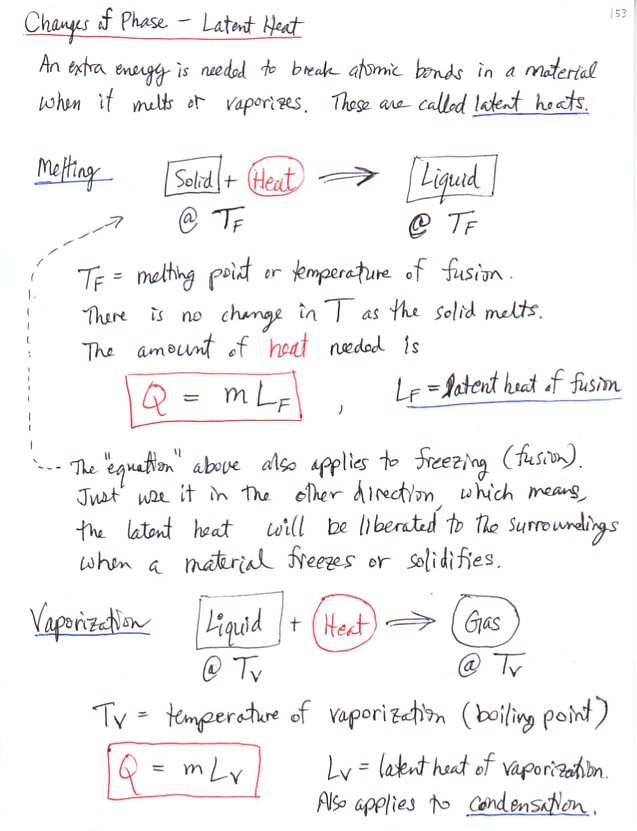 153
Changes of Phase – Latent Heat
An extra energy is needed to break atomic bonds in a material
when it melts or vaporizes. These are called latent heats.
Melting Solid + Heat ⟹ Liquid
@ TF @ TF
TF = melting point or temperature of fusion.
There is no change in T as the solid melts.
The amount of heat needed is
Q = m LF , LF = latent heat of fusion
The "equation" above also applies to freezing (fusion).
Just use it in the other direction, which means,
the latent heat will be liberated to the surroundings
when a material freezes or solidifies.
Vaporization Liquid + Heat ⟹ Gas
@ TV @ TV
TV = temperature of vaporization (boiling point)
Q = m LV LV = latent heat of vaporization.
Also applies to condensation.